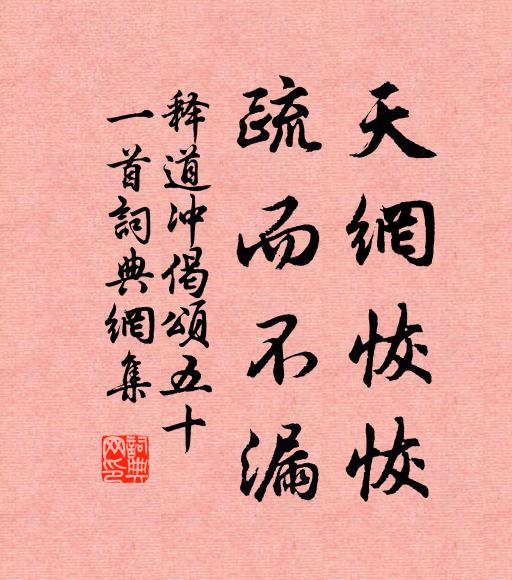 天網恢恢
疏而不漏
释道冲偈頌五十
一首詞典網集
詞典
网印